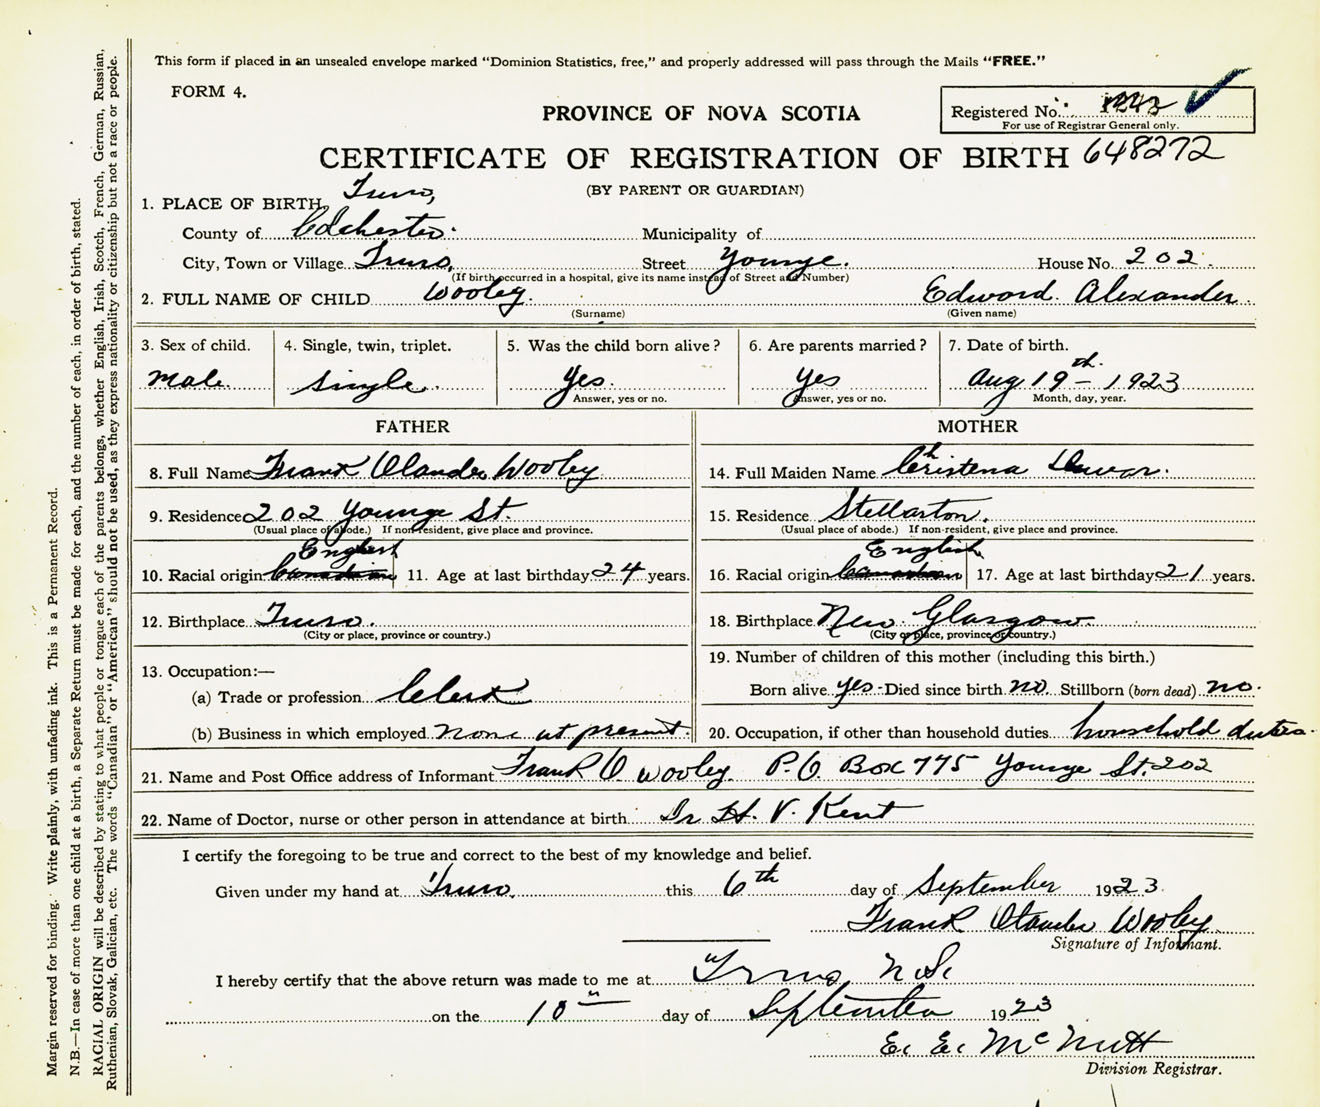 This form if placed in an unsealed envelope marked "Dominion Statistics, free," and properly addressed will pass through the Mails "FREE."
FORM 4.
PROVINCE OF NOVA SCOTIA
Registered No.
For use of Registrar General only.
CERTIFICATE OF REGISTRATION OF BIRTH 648272
(BY PARENT OR GUARDIAN)
1. PLACE OF BIRTH Truro,
County of Colchester. Municipality of
City, Town or Village Truro, Street Younge. House No. 202.
(If birth occurred in a hospital, give its name instead of Street and Number)
2. FULL NAME OF CHILD Wooley. Edward Alexander.
(Surname) (Given name)
3. Sex of child. 4. Single, twin, triplet. 5. Was the child born alive? 6. Are parents married? 7. Date of birth.
Male. Single. Yes. Yes Aug 19th - 1923
Answer, yes or no. Answer, yes or no. Month, day, year.
FATHER MOTHER
8. Full Name Frank Olander Wooley 14. Full Maiden Name Christena
9. Residence 202 Younge St. 15. Residence Stellarton.
(Usual place of abode.) If non-resident, give place and province. (Usual place of abode.) If non-resident, give place and province.
English English
10. Racial origin Canadian 11. Age at last birthday 24 years. 16. Racial origin Canadian 17. Age at last birthday 21 years.
12. Birthplace Truro. 18. Birthplace New Glasgow.
(City or place, province or country.) (City or place, province or country.)
13. Occupation:— 19. Number of children of this mother (including this birth.)
(a) Trade or profession Clerk Born alive yes - Died since birth no Stillborn (born dead) no.
(b) Business in which employed None at present. 20. Occupation, if other than household duties household duties.
21. Name and Post Office address of Informant Frank O Wooley. P.O. Box 775 Younge St. 202
22. Name of Doctor, nurse or other person in attendance at birth Dr H. V. Kent
I certify the foregoing to be true and correct to the best of my knowledge and belief.
Given under my hand at Truro, this 6th day of September 1923.
Frank Olander Wooley
Signature of Informant.
I hereby certify that the above return was made to me at Truro N.S.
on the 10th day of September 1923
E. E. McNutt
Division Registrar.
Margin reserved for binding. Write plainly, with unfading ink. This is a Permanent Record.
N.B.—In case of more than one child at a birth, a Separate Return must be made for each, and the number of each, in order of birth, stated.
RACIAL ORIGIN will be described by stating to what people or tongue each of the parents belongs, whether English, Irish, Scotch, French, German, Russian,
Ruthenian, Slovak, Galician, etc. The words "Canadian" or "American" should not be used, as they express nationality or citizenship but not a race or people.